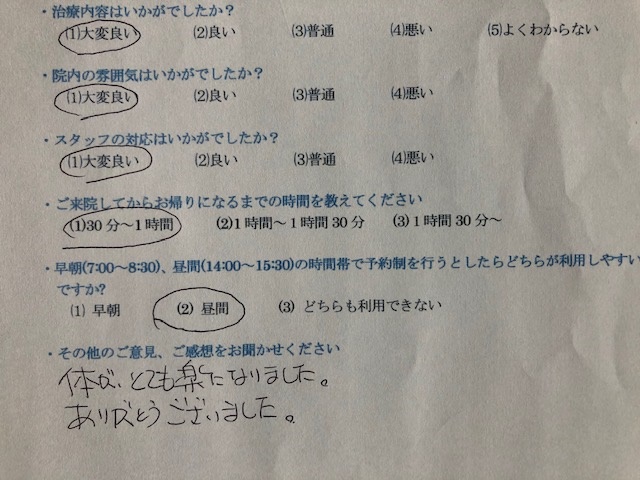 ・治療内容はいかがでしたか？
(1)大変良い (2)良い (3)普通 (4)悪い (5)よくわからない
・院内の雰囲気はいかがでしたか？
(1)大変良い (2)良い (3)普通 (4)悪い
・スタッフの対応はいかがでしたか？
(1)大変良い (2)良い (3)普通 (4)悪い
・ご来院してからお帰りになるまでの時間を教えてください
(1)30分～1時間 (2)1時間～1時間30分 (3)1時間30分～
・早朝(7:00～8:30)、昼間(14:00～15:30)の時間帯で予約制を行うとしたらどちらが利用しやすい
ですか?
(1) 早朝 (2) 昼間 (3) どちらも利用できない
・その他のご意見、ご感想をお聞かせください
体が、とても楽になりました。
ありがとうございました。